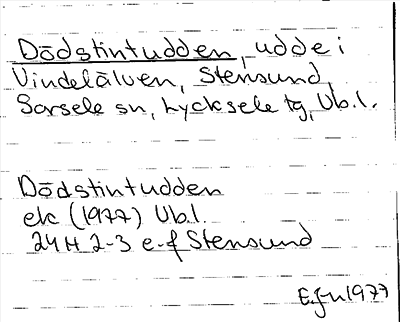 Dödstintudden, udde i
Vindelälven, Stensund,
Sorsele sn, Lycksele tg, Vb.l.
Dödstintudden
ek (1977) Vb.l.
24H 2-3 e-f Stensund
E.J-n 1977